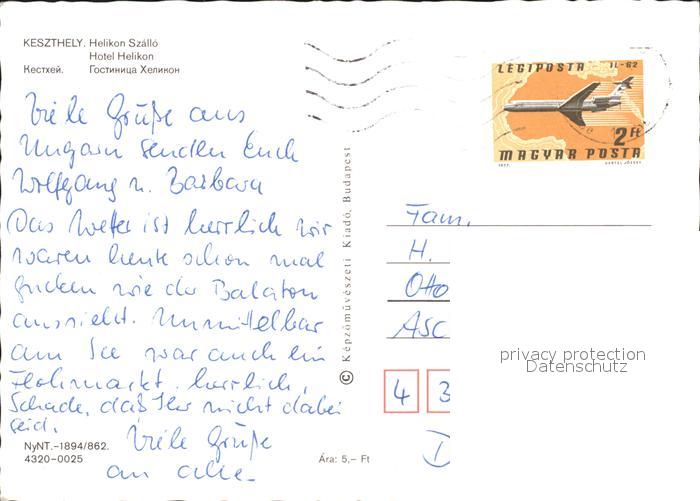 KESZTHELY. Helikon Szálló
Hotel Helikon
Кестхей. Гостиница Хеликон
Viele Grüße aus
Ungarn senden Euch
Wolfgang u. Barbara
Das Wetter ist herrlich wir
waren heute schon mal
gucken wie der Balaton
aussieht. Unmittelbar
am See war auch ein
Flohmarkt. herrlich,
Schade, daß Ihr nicht dabei
seid.
Viele Grüße
an alle
NyNT.-1894/862.
4320-0025
Ára: 5,- Ft
© Képzőművészeti Kiadó, Budapest
LÉGIPOSTA IL-62
2 Ft
MAGYAR POSTA
1977. VERTEL JÓZSEF
Fam.
H.
Otto
ASC
4 3
D
privacy protection
Datenschutz